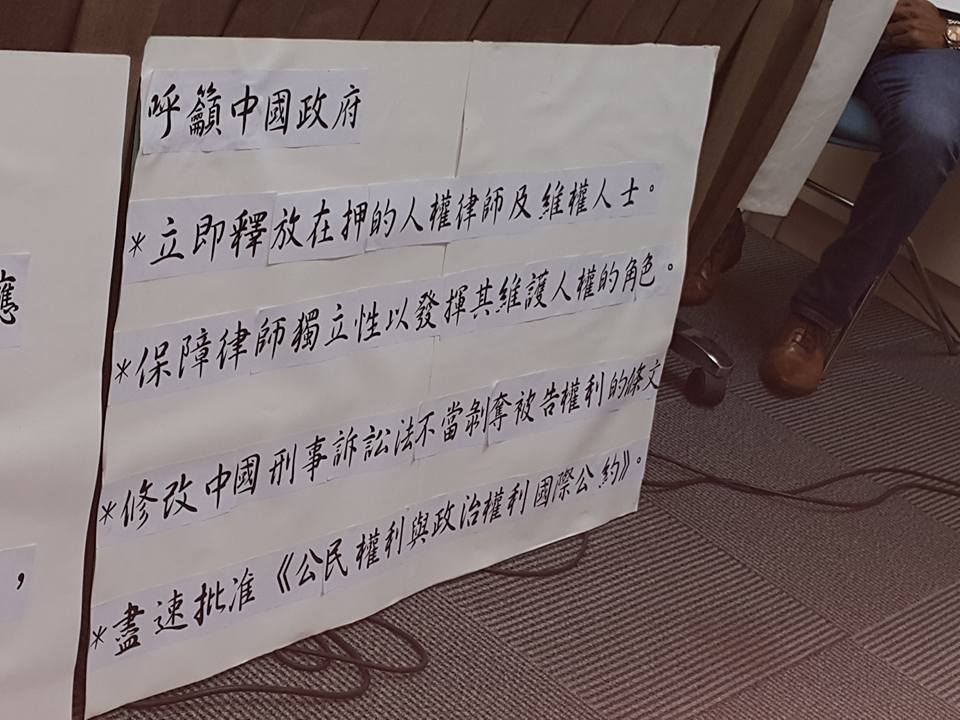 應
，
呼籲中國政府
*立即釋放在押的人權律師及維權人士。
*保障律師獨立性以發揮其維護人權的角色。
*修改中國刑事訴訟法不當剝奪被告權利的條文
*盡速批准《公民權利與政治權利國際公約》。